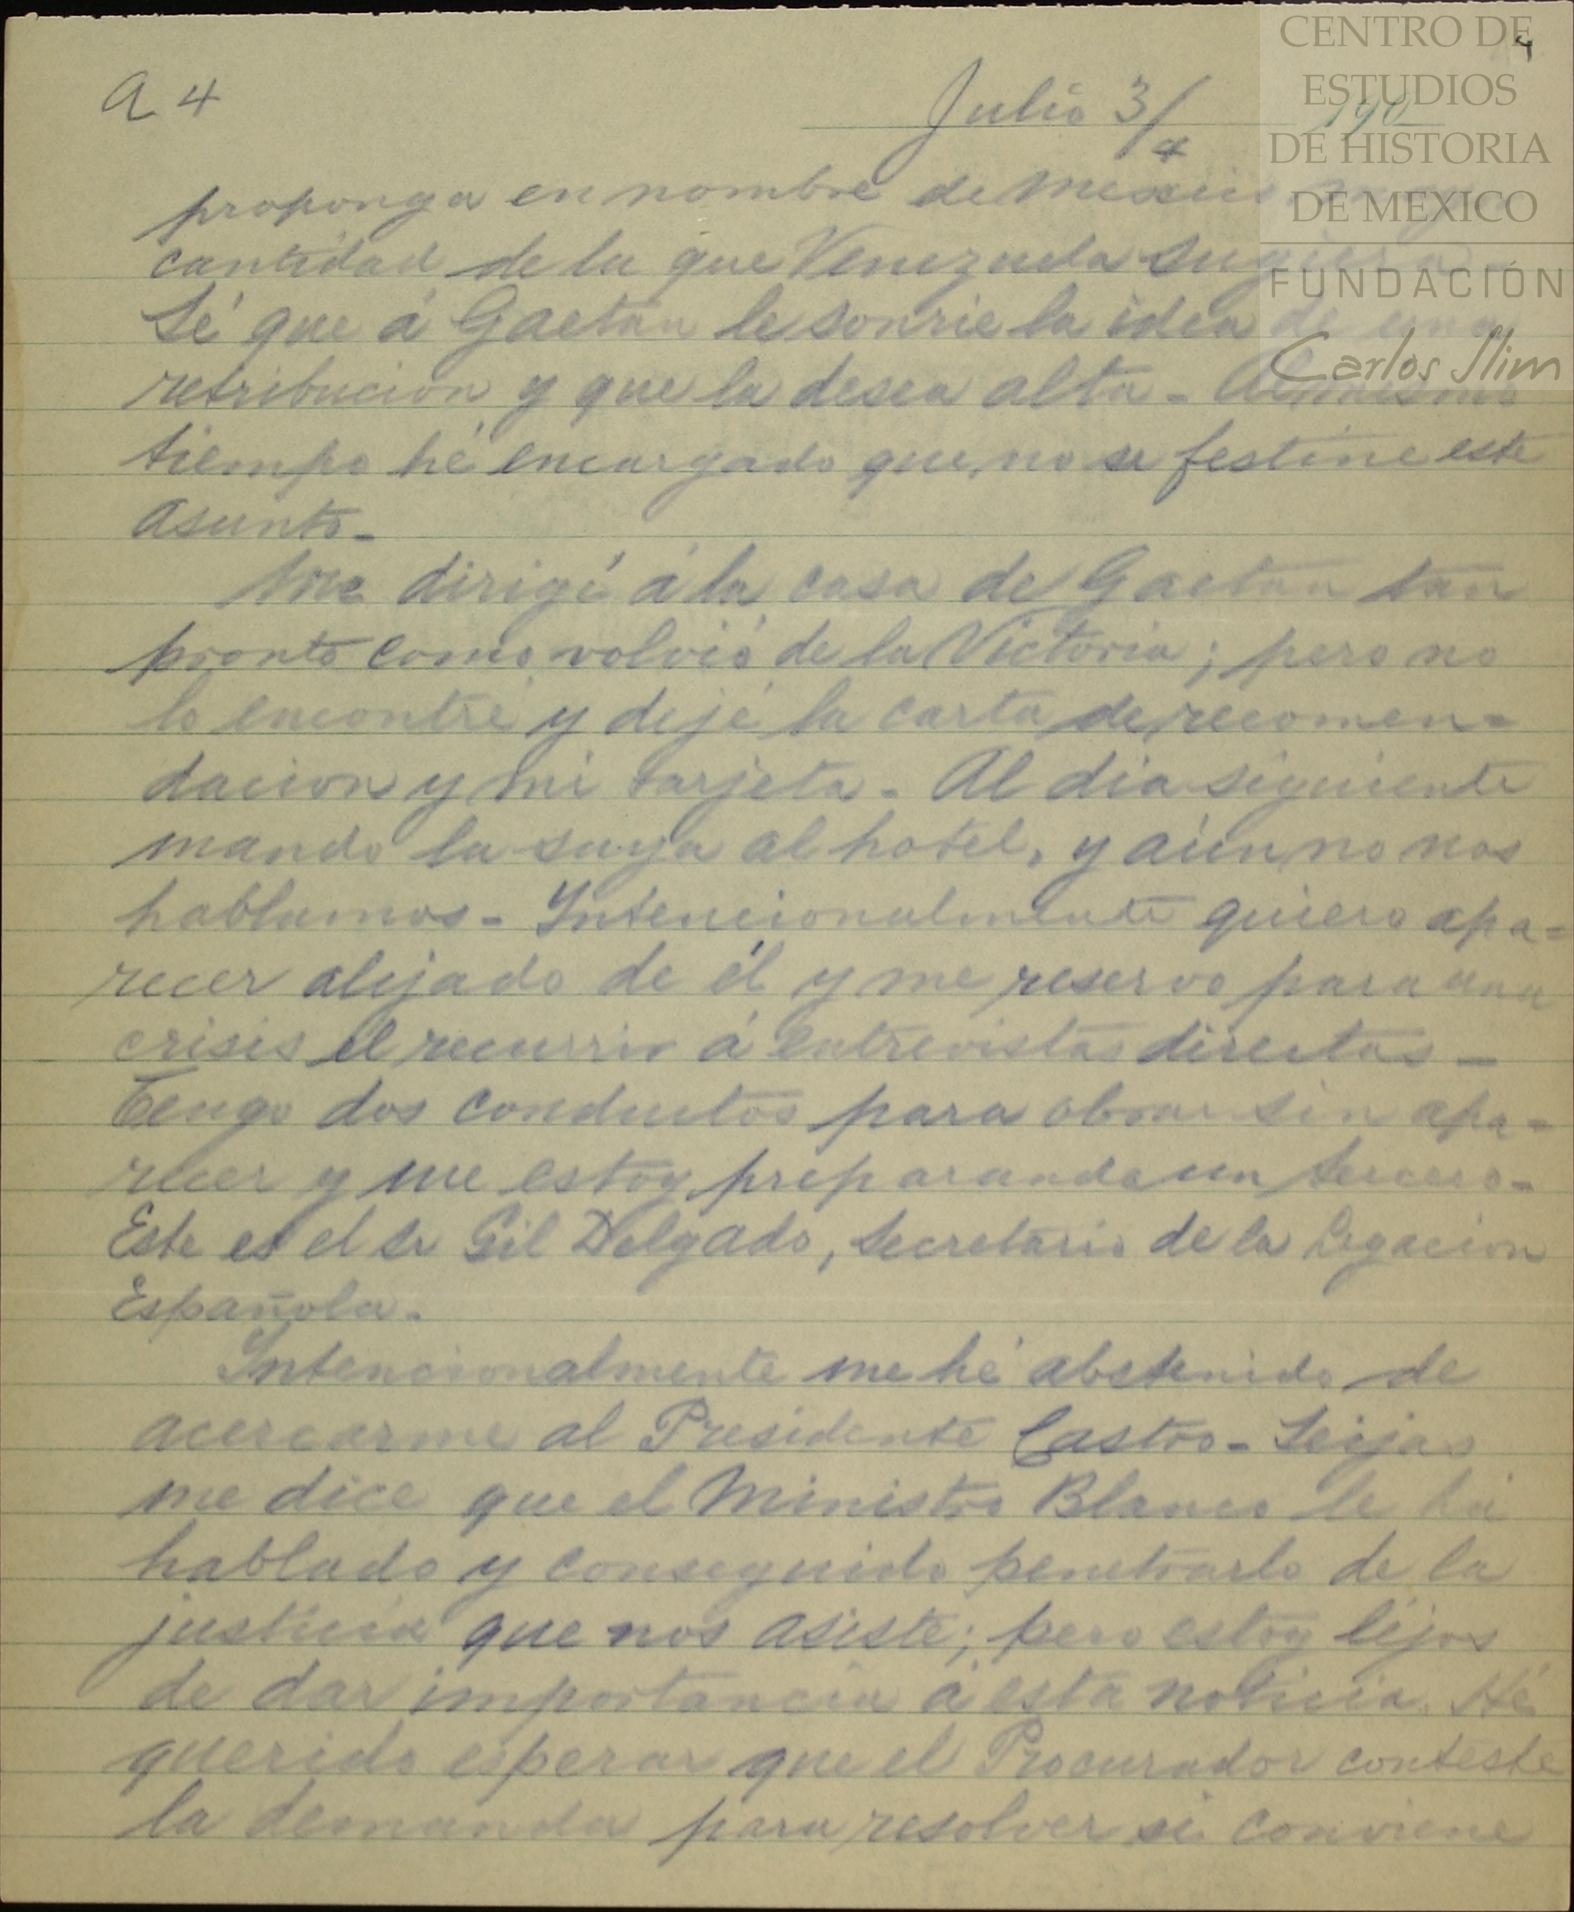 CENTRO DE
ESTUDIOS
DE HISTORIA
DE MEXICO
FUNDACIÓN
Carlos Slim
4
A 4
Julio 3/4
190
proponga en nombre de Mexico
cantidad de la que Venezuela sugiera
Sé que á Gaetan le sonrie la idea de una
retribucion y que la desea alta - Al mismo
tiempo hé encargado que no se festine este
asunto -
Me dirigí á la casa de Gaetan tan
pronto como volvió de la Victoria; pero no
lo encontré y dejé la carta de recomen=
dacion y mi tarjeta - Al dia siguiente
mando la suya al hotel, y aún no nos
hablamos - Intencionalmente quiero apa=
recer alejado de él y me reservo para una
crisis el recurrir á entrevistas directas -
Tengo dos conductos para obrar sin apa=
recer y me estoy preparando un tercero -
Este es el Sr Gil Delgado, Secretario de la Legacion
Española -
Intencionalmente me hé abstenido de
acercarme al Presidente Castro - Seijas
me dice que el Ministro Blanco le há
hablado y conseguido penetrarlo de la
justicia que nos asiste; pero estoy léjos
de dar importancia á esta noticia. Hé
querido esperar que el Procurador conteste
la demanda para resolver si conviene